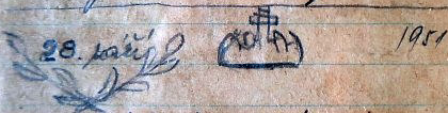 28. září 1951